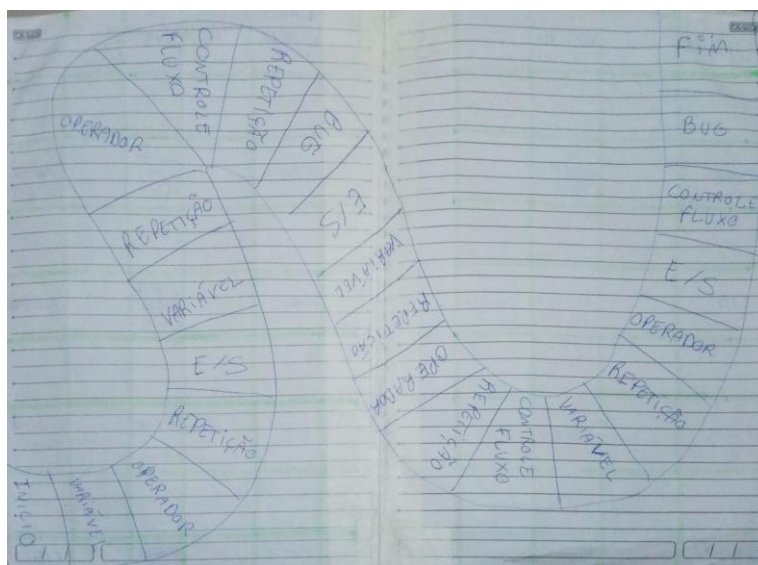 INÍCIO
VARIÁVEL
OPERADOR
REPETIÇÃO
E/S
VARIÁVEL
REPETIÇÃO
OPERADOR
CONTROLE
FLUXO
REPETIÇÃO
BUG
E/S
VARIÁVEL
REPETIÇÃO
OPERADOR
REPETIÇÃO
CONTROLE
FLUXO
VARIÁVEL
REPETIÇÃO
OPERADOR
E/S
CONTROLE
FLUXO
BUG
FIM